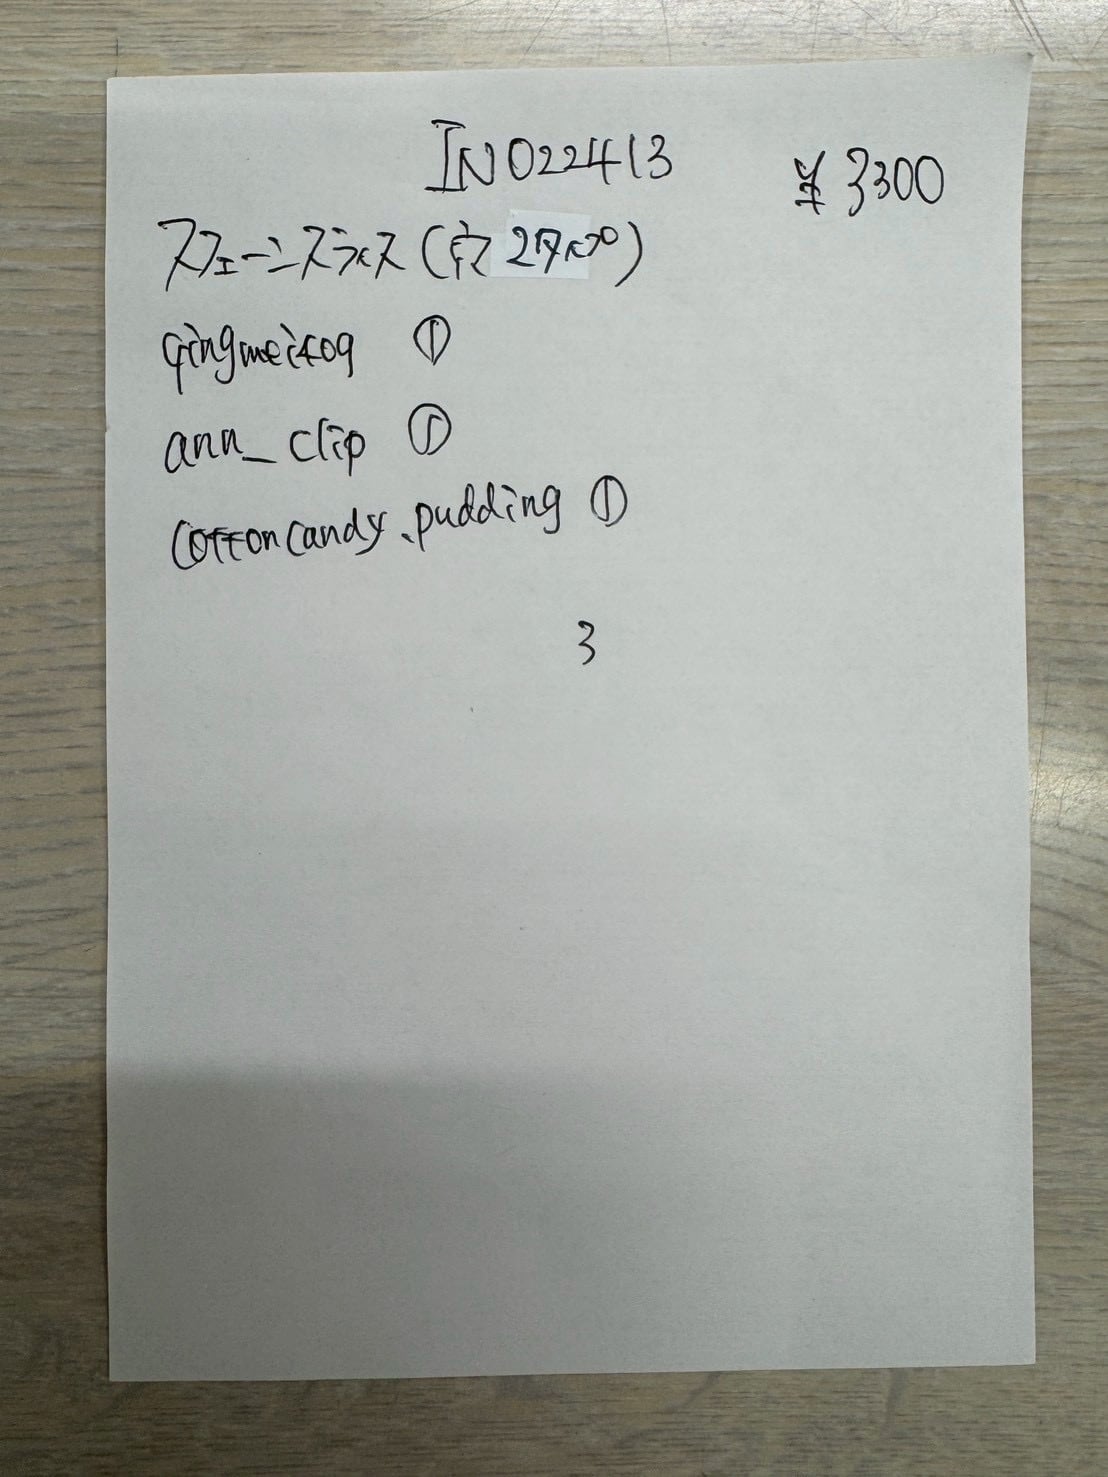 IN022413
¥3300
スフェーンズライス
qingmei409 ①
ann_clip ①
cottoncandy.pudding ①
3